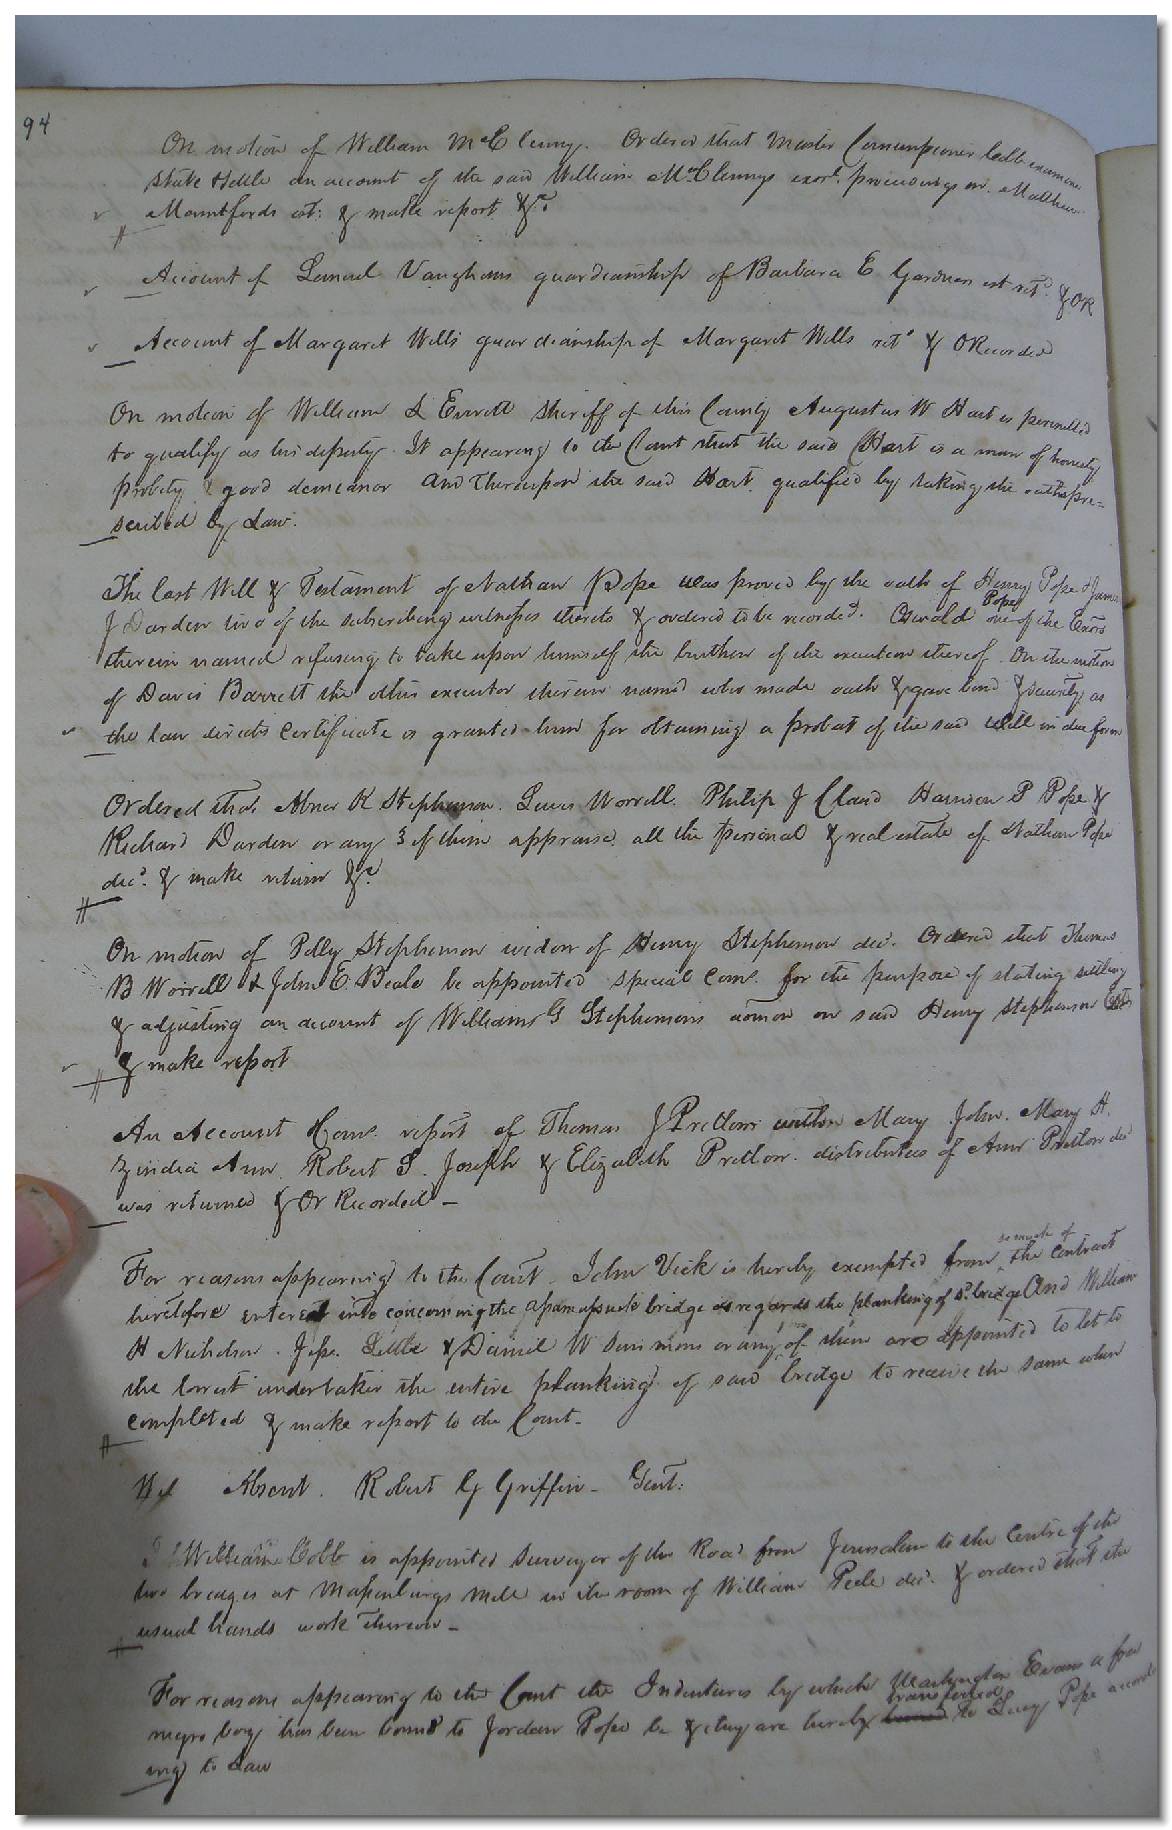 94
On motion of William McClenny. Ordered that Master Commissioner Cobb examine
state & settle an account of the said William McClennys exor. proceedings on Matthew
Mountfords est: & make report &c.
Account of Lemuel Vaughans guardianship of Barbara E Gardner est retd. & OR
Account of Margaret Wills guardianship of Margaret Wills retd & ORecorded
On motion of William S Everett Sheriff of this County Augustus W Hart is permitted
to qualify as his deputy. It appearing to the Court that the said Hart is a man of honesty
probity & good demeanor And Thereupon the said Hart qualified by taking the oaths pre=
scribed by Law.
The last Will & Testament of Nathan Pope was proved by the oath of Henry Pope & James
J Darden two of the subscribing witnesses thereto & ordered to be recorded. Oswald Pope one of the Exors
therein named refusing to take upon himself the burthen of the execution thereof. On the motion
of Davis Barrett the other executor therein named who made oath & gave bond & security as
the law directs certificate is granted him for obtaining a probat of the said will in due form
Ordered that Abner K Stephenson. Lewis Worrell. Philip J Claud Harrison P Pope &
Richard Darden or any 3 of them appraise all the personal & real estate of Nathan Pope
decd. & make return &c.
On motion of Polly Stephenson widow of Henry Stephenson decd. Ordered that Thomas
B Worrell & John E Beale be appointed special Com. for the purpose of stating settling
& adjusting an account of Williams G Stephensons admon on said Henry Stephenson Este
& make report
An Account Com. report of Thomas J Pretlow with Mary John. Mary H.
Ann Robert S. Joseph & Elizabeth Pretlow. distributees of Ann Pretlow decd
was returned & Or Recorded –
For reasons appearing to the Court. John Vick is hereby exempted from so much of the contract
heretofore entered into concerning the apamapsuck bridge as regards the planking of sd. bridge And William
H Nicholson. Jesse Little & Daniel W Simmons or any of them are appointed to let to
the lowest undertaker the entire planking of said bridge to receive the same when
completed & make report to the Court –
Absent. Robert G Griffin – Gent:
William Cobb is appointed Surveyor of the Road from Jerusalem to the Centre of the
two bridges at Massenburgs Mill in the room of William Peele decd. & ordered that the
usual hands work thereon –
For reasons appearing to the Court the Indentures by which Washington Evans a free
negro boy has been bound to Jordan Pope be & they are hereby transferred to Lucy Pope accord
ing to Law